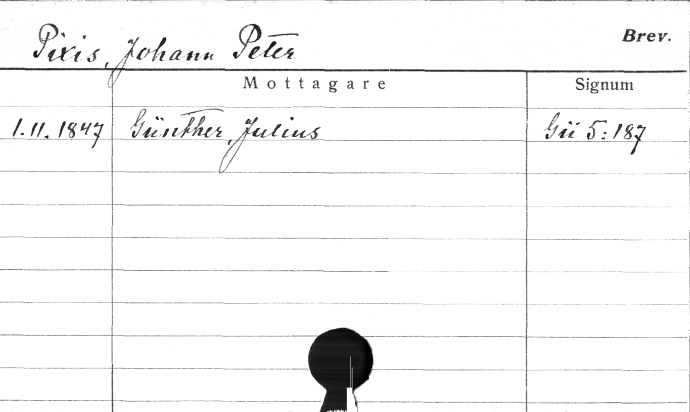 Pixis, Johann Peter Brev.
Mottagare Signum
1.11.1847 Günther, Julius Gü 5:187